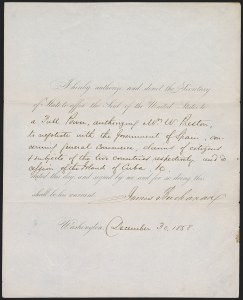 I hereby authorize and direct the Secretary
of State to affix the Seal of the United States to
a Full Power, authorizing Mr W. Preston,
to negotiate with the Government of Spain, con-
cerning general commerce, claims of citizens
& subjects of the two countries respectively and
of the Island of Cuba &c
dated this day and signed by me and for so doing this
shall be his warrant.
James Buchanan
Washington, December 30, 1858